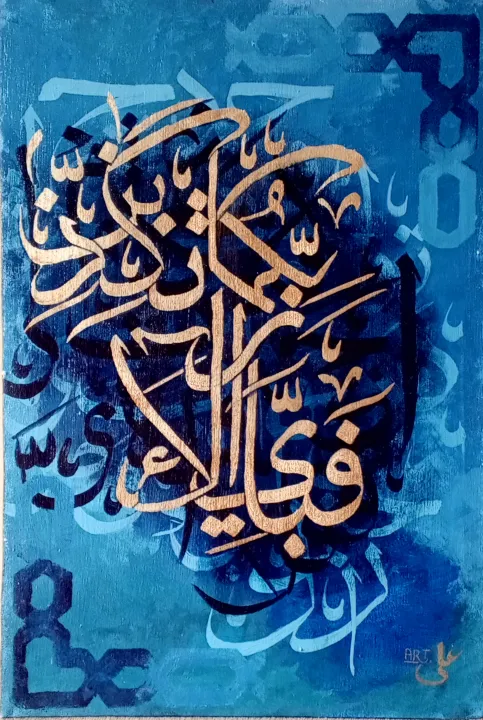 فَبِأَيِّ آلَاءِ
رَبِّكُمَا تُكَذِّبَانِ
ART علي